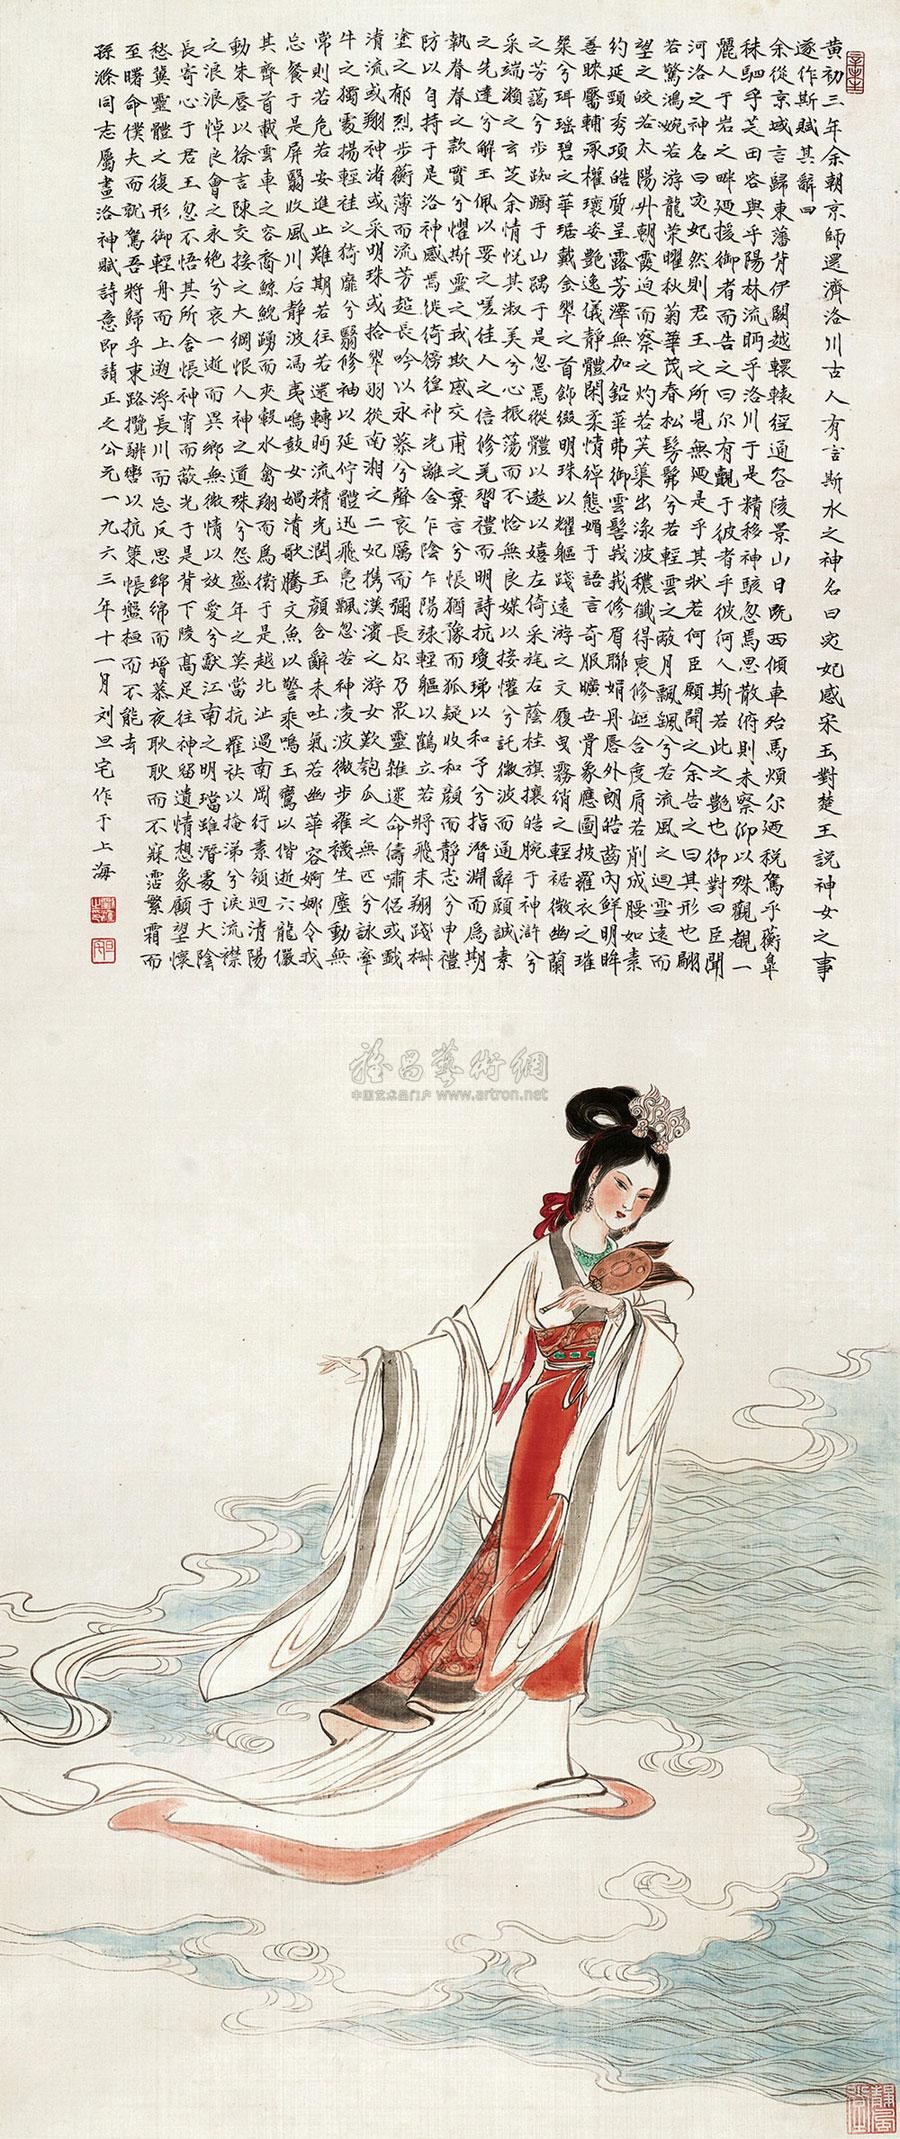 黄初三年余朝京師還濟洛川古人有言斯水之神名曰宓妃感宋玉對楚王説神女之事
遂作斯賦其辭曰
余從京域言歸東藩背伊闕越轘轅經通谷陵景山日既西傾車殆馬煩尔廼税駕乎蘅皋
秣駟乎芝田容與乎陽林流眄乎洛川于是精移神駭忽焉思散俯則未察仰以殊觀覩一
麗人于岩之畔廼援御者而告之曰尔有覿于彼者乎彼何人斯若此之艷也御對曰臣聞
河洛之神名曰宓妃然則君王之所見無廼是乎其狀若何臣願聞之余告之曰其形也翩
若驚鴻婉若游龍榮曜秋菊華茂春松髣髴兮若輕雲之蔽月飄飖兮若流風之迴雪遠而
望之皎若太陽升朝霞迫而察之灼若芙蕖出淥波穠纖得衷修短合度肩若削成腰如素
約延頸秀項皓質呈露芳澤無加鉛華弗御雲髻峩峩修眉聯娟丹唇外朗皓齒内鮮明眸
善睞靨輔承權瓌姿艷逸儀靜體閑柔情綽態媚于語言奇服曠世骨象應圖披羅衣之璀
粲兮珥瑶碧之華琚戴金翠之首飾綴明珠以耀軀踐遠游之文履曳霧綃之輕裾微幽蘭
之芳藹兮步踟躕于山隅于是忽焉縱體以遨以嬉左倚采旄右蔭桂旗攘皓腕于神滸兮
采湍瀨之玄芝余情悦其淑美兮心振蕩而不怡無良媒以接懽兮託微波而通辭願誠素
之先達兮解玉佩以要之嗟佳人之信修羌習禮而明詩抗瓊珶以和予兮指潛淵而為期
執眷眷之款實兮懼斯靈之我欺感交甫之棄言兮悵猶豫而狐疑收和顏而靜志兮申禮
防以自持于是洛神感焉徙倚傍徨神光離合乍陰乍陽竦輕軀以鶴立若將飛未翔踐椒
塗之郁烈步蘅薄而流芳超長吟以永慕兮聲哀厲而彌長尔乃眾靈雜遝命儔嘯侣或戲
清流或翔神渚或采明珠或拾翠羽從南湘之二妃携漢濱之游女歎匏瓜之無匹兮詠牽
牛之獨處揚輕袿之猗靡兮翳修袖以延佇體迅飛鳧飄忽若神凌波微步羅襪生塵動無
常則若危若安進止難期若往若還轉眄流精光潤玉顏含辭未吐氣若幽華容婀娜令我
忘餐于是屏翳收風川后靜波馮夷鳴鼓女媧清歌騰文魚以警乘鳴玉鸞以偕逝六龍儼
其齊首載雲車之容裔鯨鯢踴而夾轂水禽翔而為衛于是越北沚過南岡行素領迴清陽
動朱唇以徐言陳交接之大綱恨人神之道殊兮怨盛年之莫當抗羅袂以掩涕兮淚流襟
之浪浪悼良會之永絶兮哀一逝而異鄉無微情以效愛兮獻江南之明璫雖潛處于太陰
長寄心于君王忽不悟其所舍悵神宵而蔽光于是背下陵高足往神留遺情想象顧望懷
愁冀靈體之復形御輕舟而上遡浮長川而忘反思綿綿而增慕夜耿耿而不寐霑繁霜而
至曙命僕夫而就駕吾將歸乎東路攬騑轡以抗策悵盤桓而不能去
孫滌同志屬畫洛神賦詩意即請正之公元一九六三年十一月刘旦宅作于上海
雅昌藝術網
中国艺术品门户 www.artron.net